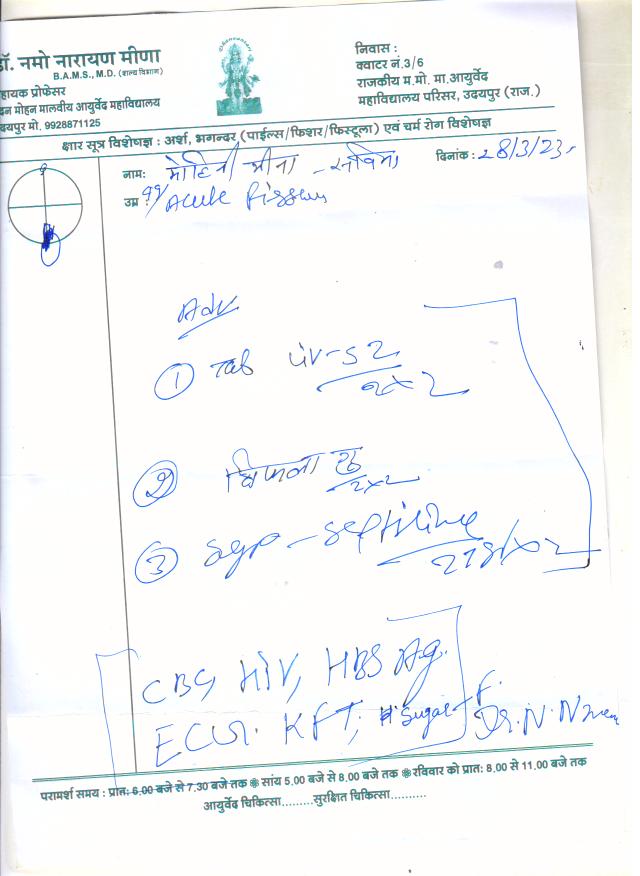 डॉ. नमो नारायण मीणा
B.A.M.S., M.D. (शल्य विभाग)
हायक प्रोफेसर
दन मोहन मालवीय आयुर्वेद महाविद्यालय
दयपुर मो. 9928871125
निवास :
क्वाटर नं.3/6
राजकीय म.मो. मा.आयुर्वेद
महाविद्यालय परिसर, उदयपुर (राज.)
क्षार सूत्र विशेषज्ञ : अर्श, भगन्दर (पाईल्स/फिशर/फिस्टूला) एवं चर्म रोग विशेषज्ञ
नामः मोहिनी मीना -
दिनांक : 28/3/23
उम्र : Acute fissure
Adv
① Tab
2x2
② त्रिफला गु
2x2
③ Syp - Septilin
CBC, HIV, HBS Ag.
ECG. KFT, Sugar - F.
Dr. N. N
परामर्श समय : प्रातः 6.00 बजे से 7.30 बजे तक सांय 5.00 बजे से 8.00 बजे तक रविवार को प्रातः 8.00 से 11.00 बजे तक
आयुर्वेद चिकित्सा.........सुरक्षित चिकित्सा..........